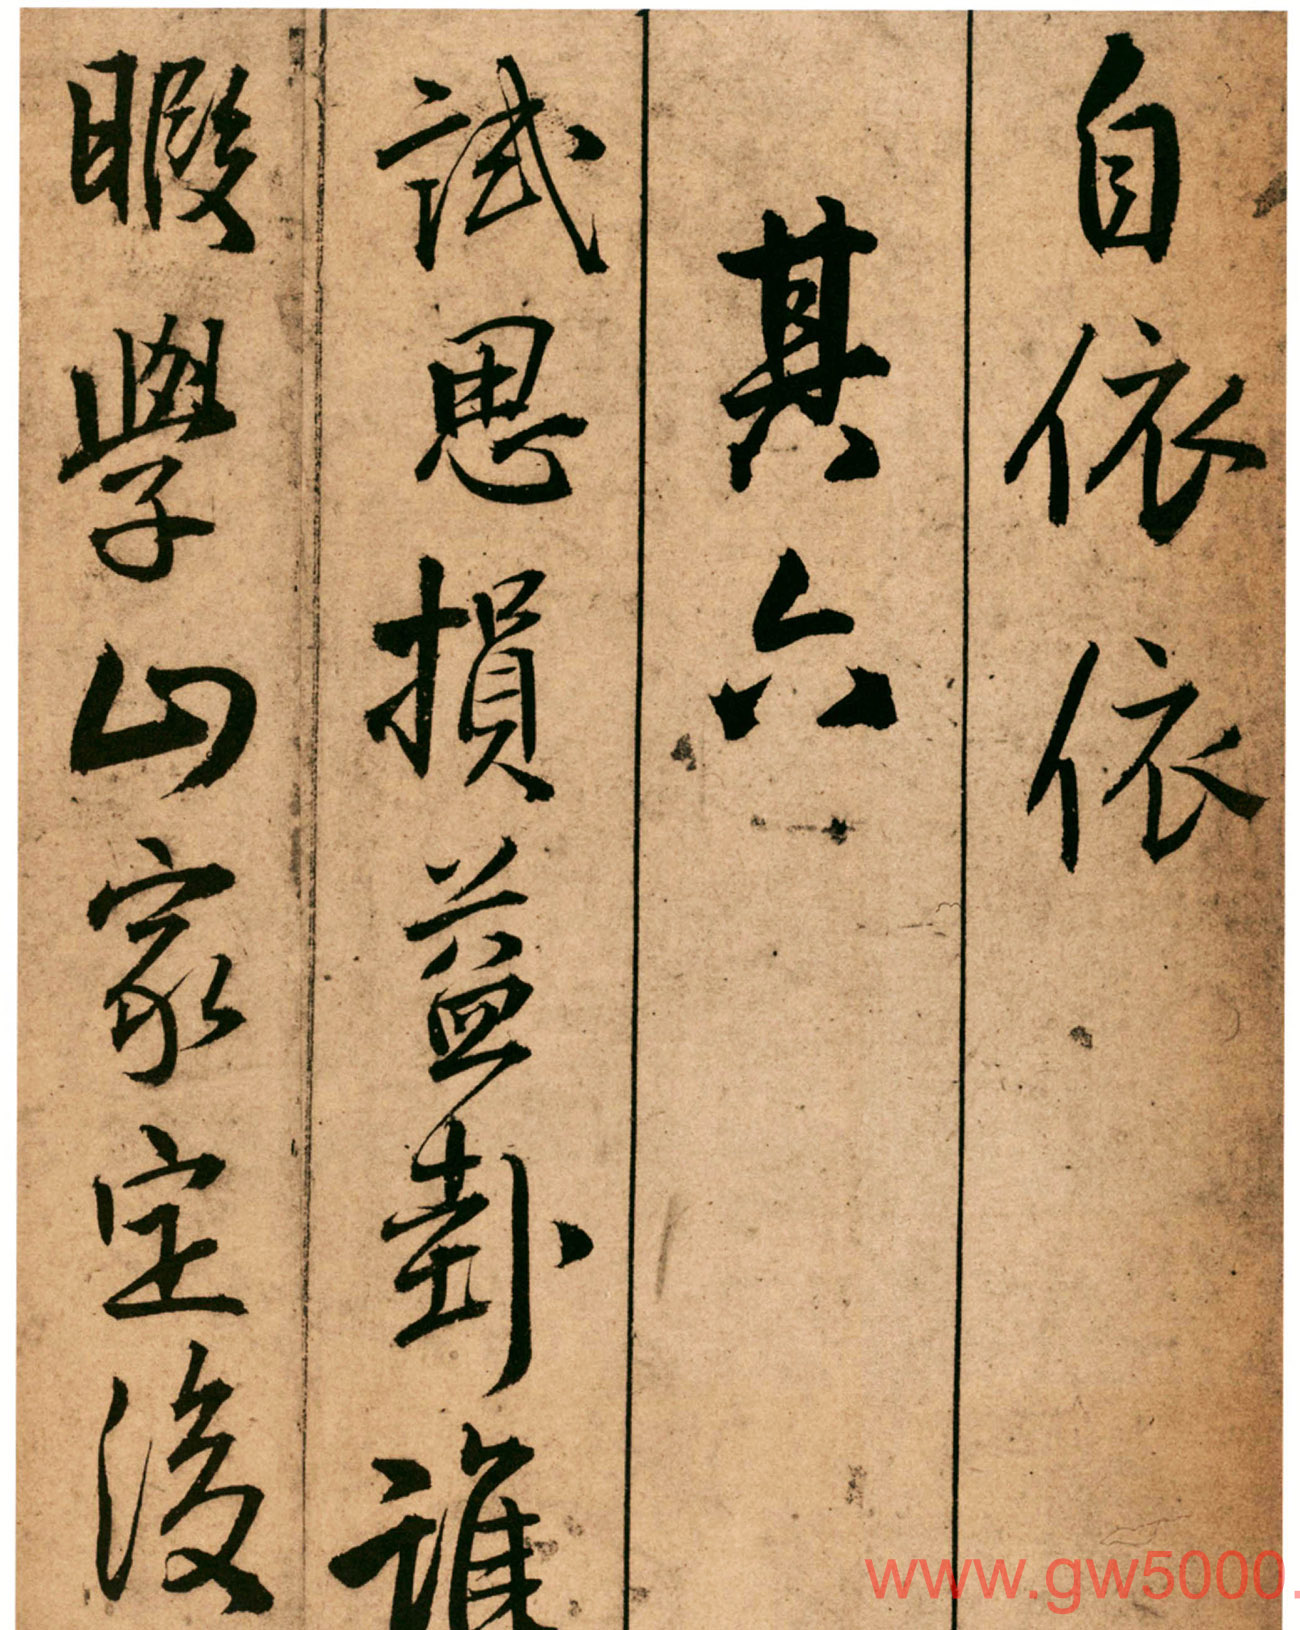 自依依
其六
試思損益卦誰
暇學山家定後
www.gw5000.